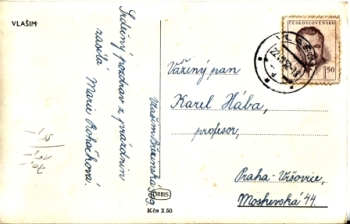 VLAŠIM
Srdečný pozdrav z prázdnin
zasílá
Marie
ORBIS
Kčs 2.50
ČESKOSLOVENSKO
1.50
Vážený pan
Karel Hába,
profesor,
Praha-Vršovice,
Moskevská 44